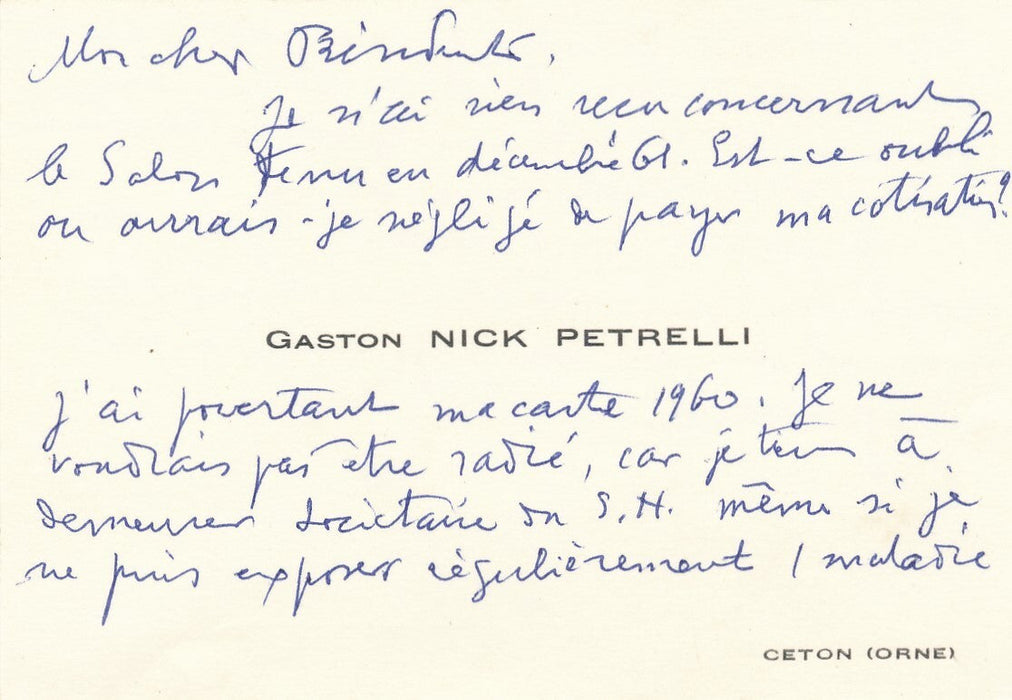 Mon cher Président,
Je n'ai rien reçu concernant
le Salon tenu en décembre 61. Est-ce oubli
ou aurais-je négligé de payer ma cotisation?
GASTON NICK PETRELLI
J'ai pourtant ma carte 1960. Je ne
voudrais pas être radié, car je tiens à
demeurer sociétaire du S.H. même si je
ne puis exposer régulièrement / maladie
CETON (ORNE)